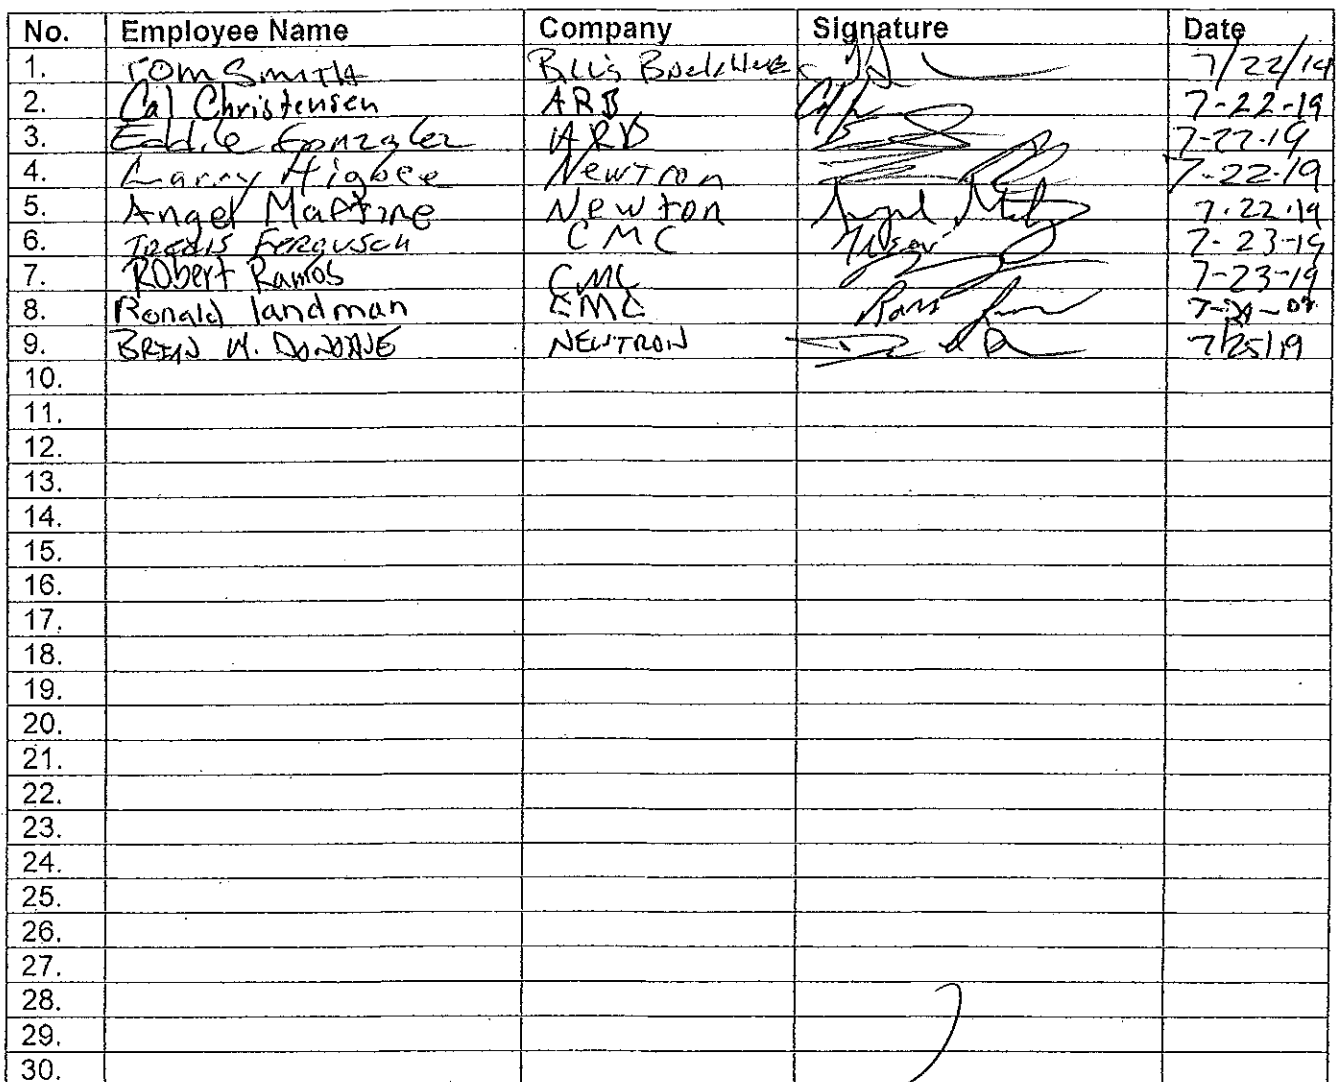 No. Employee Name Company Signature Date
1. Tom Smith 7/22/19
2. Cal Christensen ARB 7-22-19
3. Eddie Gonzalez ARB 7-22-19
4. Larry Higbee Newtron 7-22-19
5. Angel Martine Newton Angel 7.22.19
6. Ferguson CMC 7-23-19
7. Robert Ramos CMC 7-23-19
8. Ronald landman CMC
9. BRIAN M. NEWTRON 7/25/19
10.
11.
12.
13.
14.
15.
16.
17.
18.
19.
20.
21.
22.
23.
24.
25.
26.
27.
28.
29.
30.